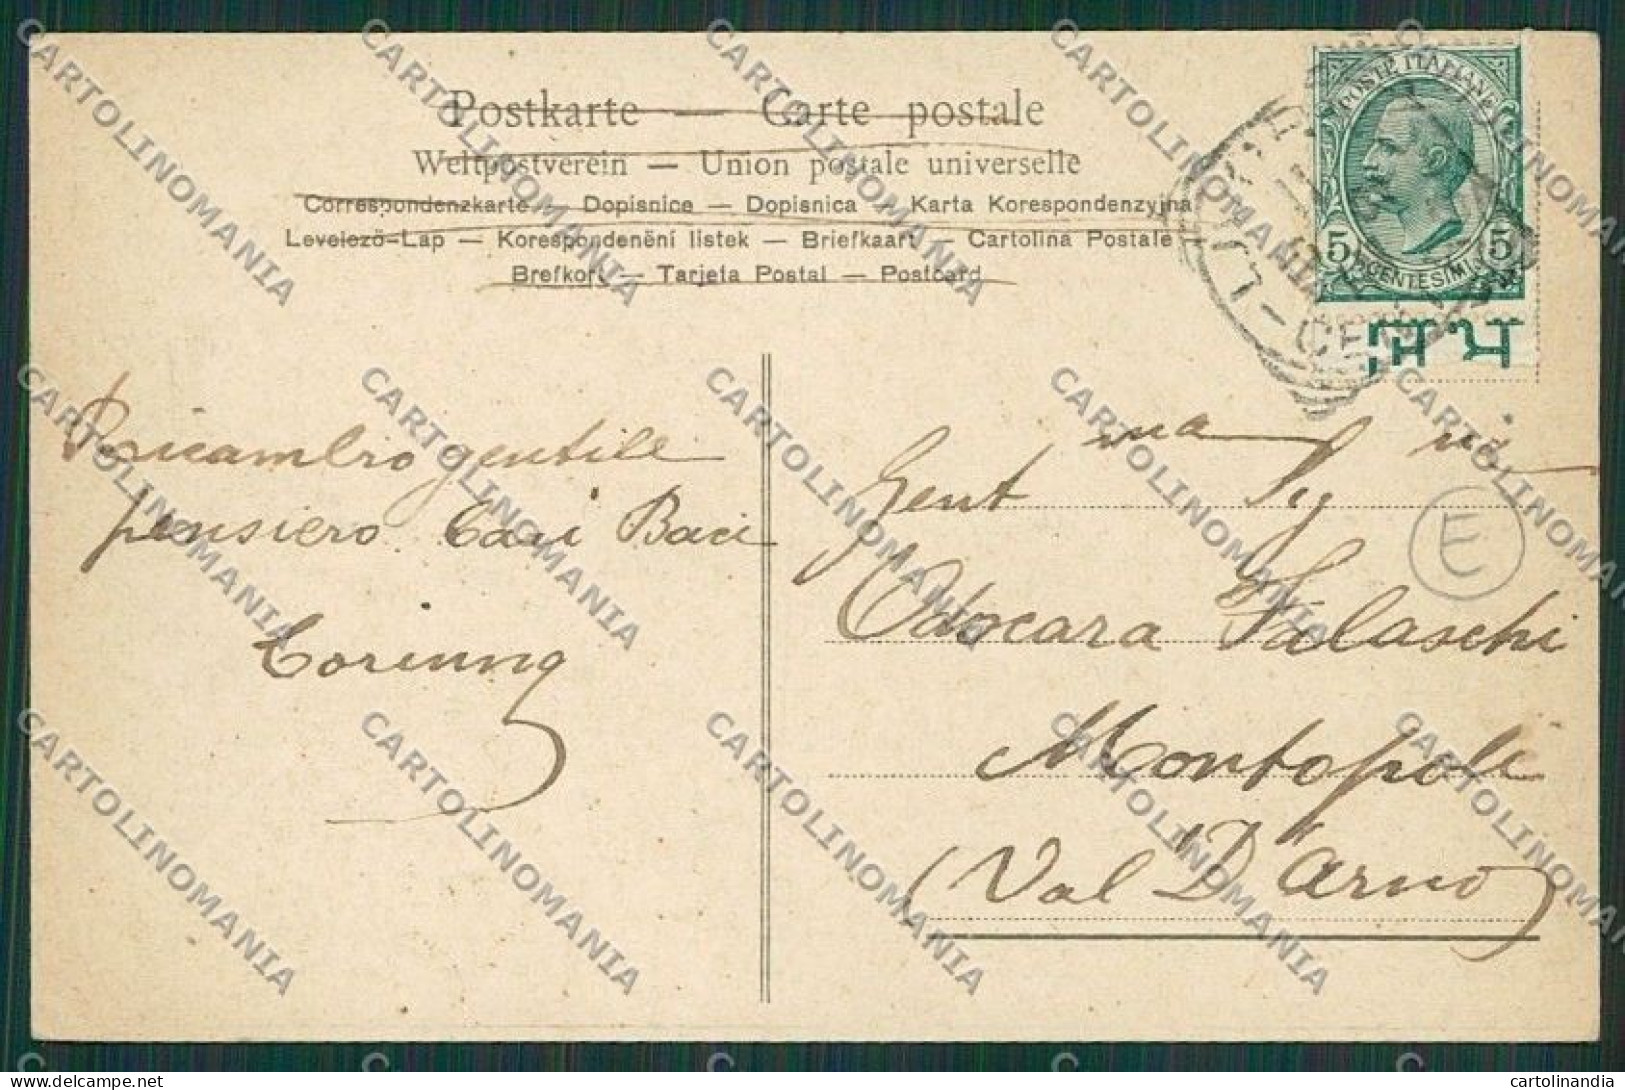 Postkarte — Carte postale
Weltpostverein — Union postale universelle
Correspondenzkarte — Dopisnice — Dopisnica — Karta Korespondenzyjna
Levelező-Lap — Korespondenční lístek — Briefkaart — Cartolina Postale
Brefkort — Tarjeta Postal — Postcard
POSTE ITALIANE
5 CENTESIMI 5
Ricambio gentile
pensiero Cari Baci
Corinna
Gent ma Sig na
Odocara Falaschi
Montopoli
(Val D'Arno)
E
CARTOLINOMANIA
cartolinandia